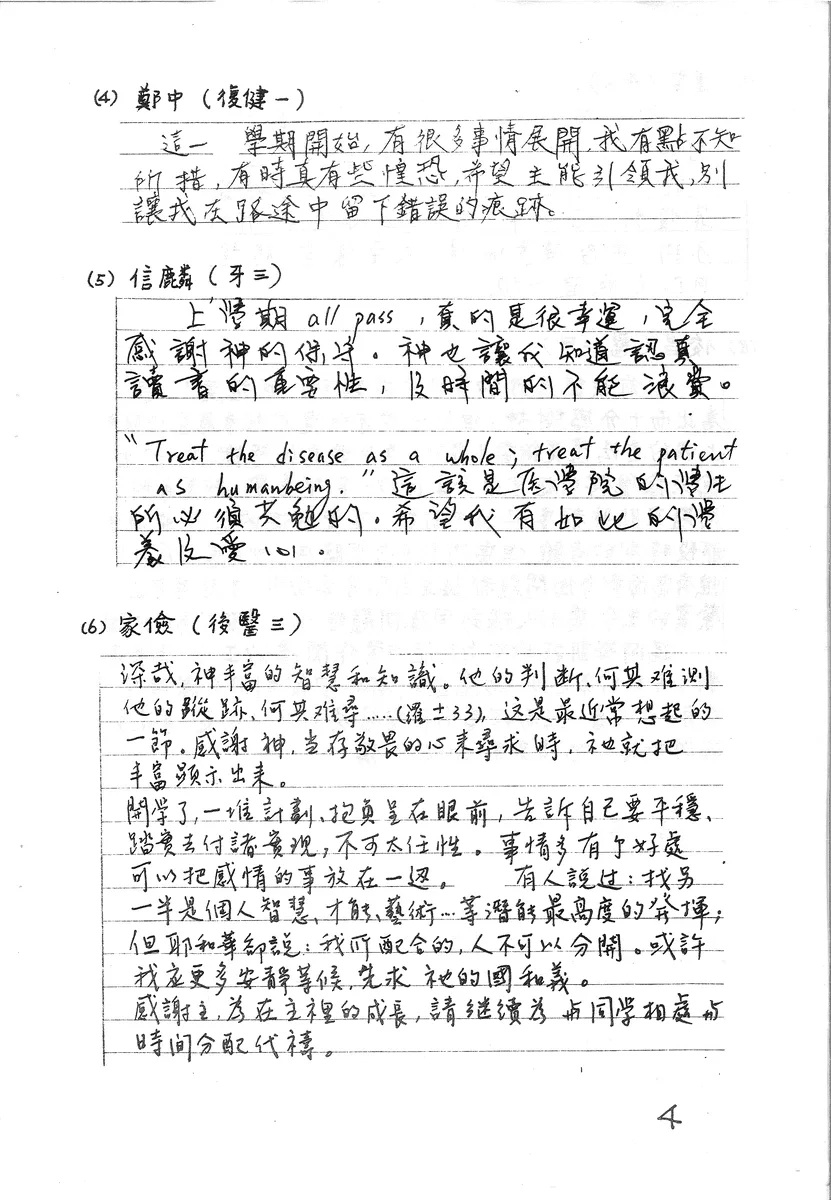 (4) 鄭中 (復健一)
這一 學期開始,有很多事情展開,我有點不知
所措,有時真有些惶恐,希望主能引領我,別
讓我在路途中留下錯誤的痕跡。
(5) 信麟 (牙三)
上學期 all pass,真的是很幸運,完全
感謝神的保守。神也讓我知道認真
讀書的重要性,及時間的不能浪費。
"Treat the disease as a whole; treat the patient
as humanbeing." 這該是医學院的學生
所必須共勉的。希望我有如此的學
養及愛心。
(6) 家儉 (後醫三)
深哉,神丰富的智慧和知識。他的判断,何其难测
他的蹤跡、何其难尋……(羅十一33),这是最近常想起的
一節。感謝神,当存敬畏的心来尋求時,祂就把
丰富顕示出来。
開学了,一堆計劃、抱負呈在眼前,告訴自己要平穩、
踏實去付諸實現,不可太任性。事情多有个好處
可以把感情的事放在一边。 有人說过:找另
一半是個人智慧、才能、藝術…等潛能最高度的発揮;
但耶和華卻說:我所配合的,人不可以分開。或許
我应更多安靜等候,先求祂的國和義。
感謝主,為在主裡的成長,請継續為与同学相處与
時间分配代禱。
4